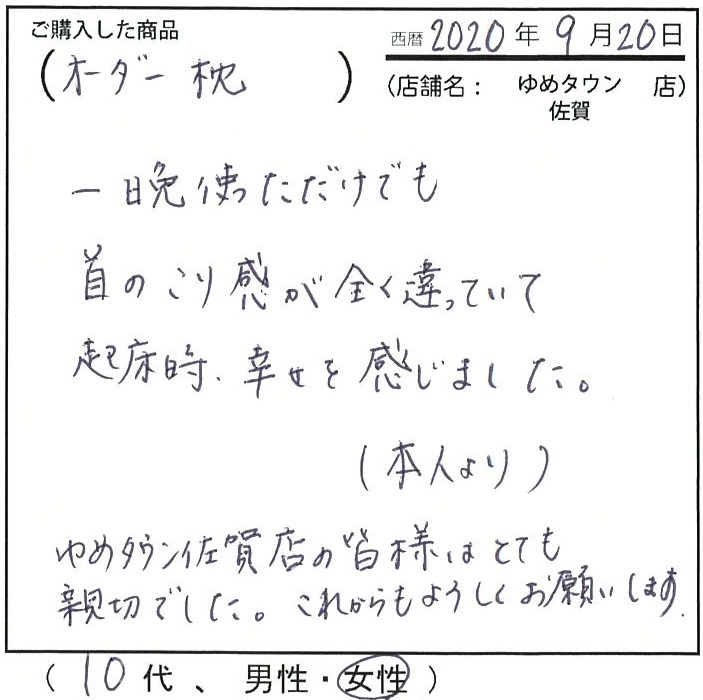 ご購入した商品
西暦 2020年 9月20日
(オーダー枕)
(店舗名： ゆめタウン 店)
佐賀
一晩使っただけでも
首のこり感が全く違っていて
起床時、幸せを感じました。
(本人より)
ゆめタウン佐賀店の皆様はとても
親切でした。これからもよろしくお願いします
(10代、男性・女性)